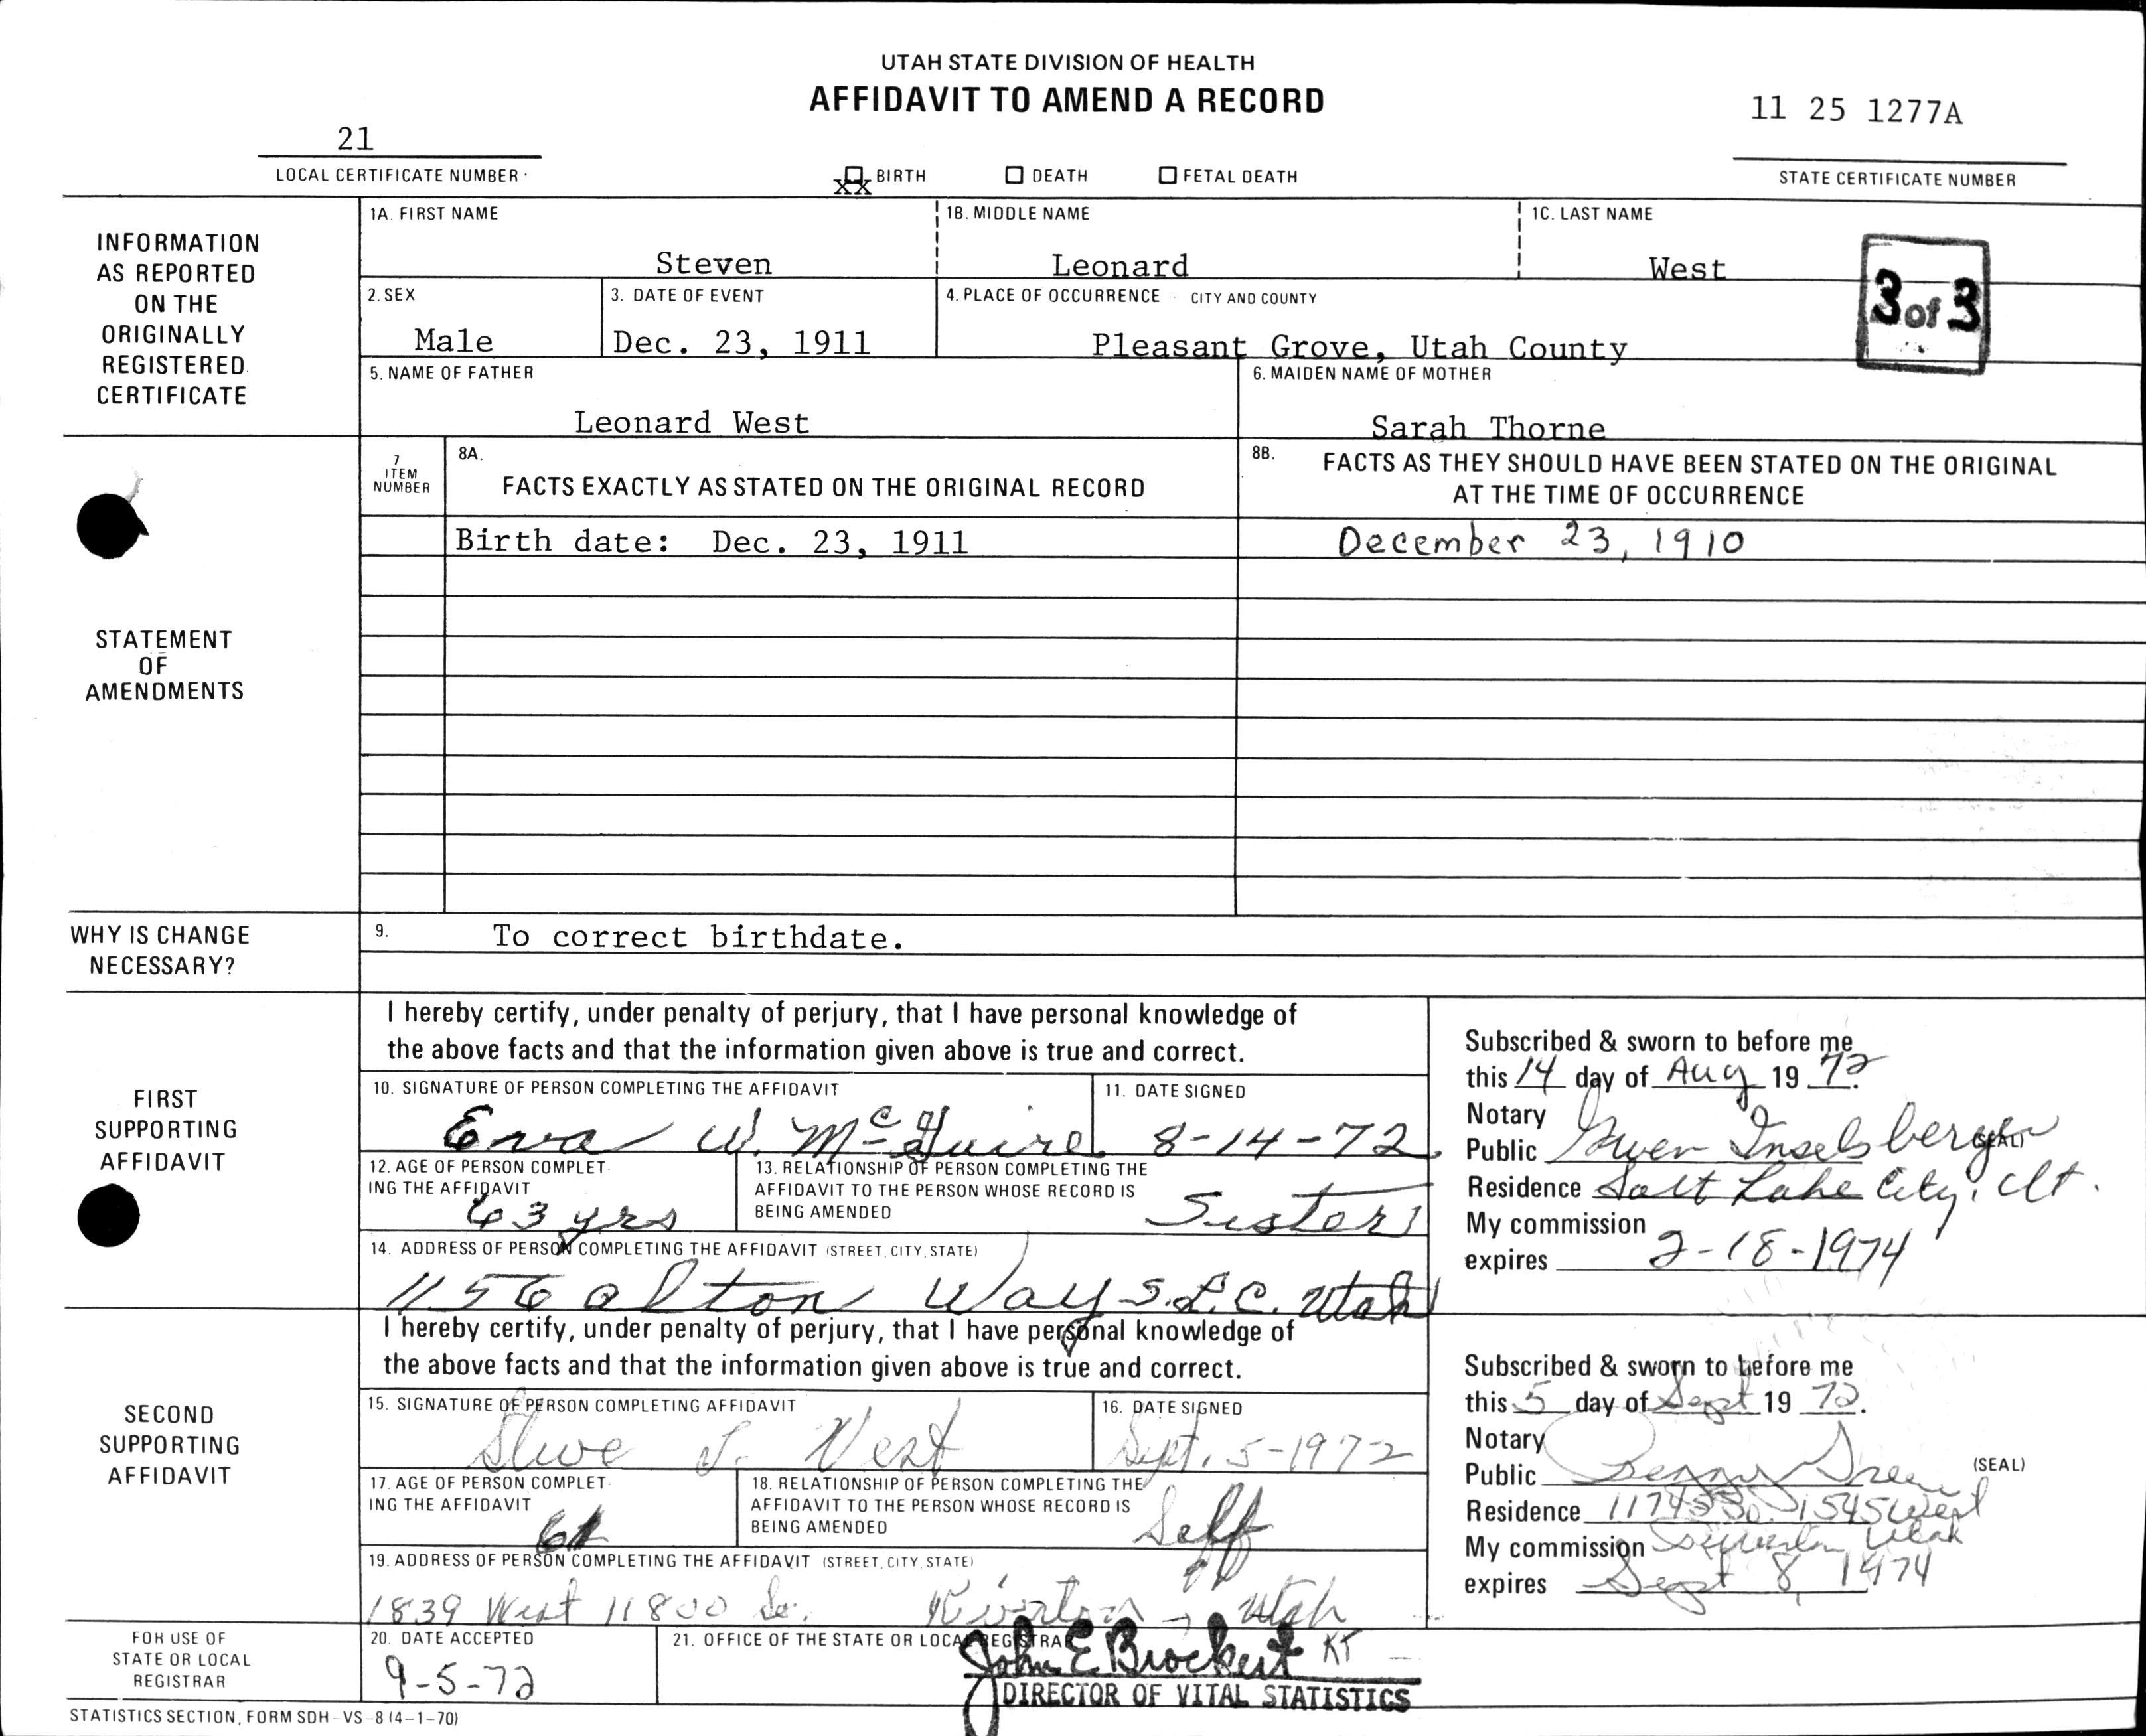 UTAH STATE DIVISION OF HEALTH
AFFIDAVIT TO AMEND A RECORD
11 25 1277A
21
LOCAL CERTIFICATE NUMBER
XX BIRTH DEATH FETAL DEATH
STATE CERTIFICATE NUMBER
INFORMATION AS REPORTED ON THE ORIGINALLY REGISTERED CERTIFICATE
1A. FIRST NAME 1B. MIDDLE NAME 1C. LAST NAME
Steven Leonard West
3 of 3
2. SEX 3. DATE OF EVENT 4. PLACE OF OCCURRENCE CITY AND COUNTY
Male Dec. 23, 1911 Pleasant Grove, Utah County
5. NAME OF FATHER 6. MAIDEN NAME OF MOTHER
Leonard West Sarah Thorne
STATEMENT OF AMENDMENTS
7 ITEM NUMBER
8A. FACTS EXACTLY AS STATED ON THE ORIGINAL RECORD
8B. FACTS AS THEY SHOULD HAVE BEEN STATED ON THE ORIGINAL
AT THE TIME OF OCCURRENCE
Birth date: Dec. 23, 1911 December 23, 1910
WHY IS CHANGE NECESSARY?
9. To correct birthdate.
FIRST SUPPORTING AFFIDAVIT
I hereby certify, under penalty of perjury, that I have personal knowledge of
the above facts and that the information given above is true and correct.
10. SIGNATURE OF PERSON COMPLETING THE AFFIDAVIT 11. DATE SIGNED
Eva W. McGuire 8-14-72
12. AGE OF PERSON COMPLETING THE AFFIDAVIT
63 yrs
13. RELATIONSHIP OF PERSON COMPLETING THE
AFFIDAVIT TO THE PERSON WHOSE RECORD IS
BEING AMENDED
Sister
14. ADDRESS OF PERSON COMPLETING THE AFFIDAVIT (STREET, CITY, STATE)
1156 Alton Way S.L.C. Utah
Subscribed & sworn to before me
this 14 day of Aug 19 72.
Notary
Public Gwen Inselsberger (SEAL)
Residence Salt Lake City, Ut.
My commission
expires 2-18-1974
SECOND SUPPORTING AFFIDAVIT
I hereby certify, under penalty of perjury, that I have personal knowledge of
the above facts and that the information given above is true and correct.
15. SIGNATURE OF PERSON COMPLETING AFFIDAVIT 16. DATE SIGNED
West Sept. 5-1972
17. AGE OF PERSON COMPLETING THE AFFIDAVIT
61
18. RELATIONSHIP OF PERSON COMPLETING THE
AFFIDAVIT TO THE PERSON WHOSE RECORD IS
BEING AMENDED
Self
19. ADDRESS OF PERSON COMPLETING THE AFFIDAVIT (STREET, CITY, STATE)
1839 West 11800 So. Riverton, Utah
Subscribed & sworn to before me
this 5 day of Sept 19 72.
Notary
Public (SEAL)
Residence 1545 West
My commission Utah
expires Sept 8, 1974
FOR USE OF STATE OR LOCAL REGISTRAR
20. DATE ACCEPTED
9-5-72
21. OFFICE OF THE STATE OR LOCAL REGISTRAR
John E Brockert KT
DIRECTOR OF VITAL STATISTICS
STATISTICS SECTION, FORM SDH-VS-8 (4-1-70)